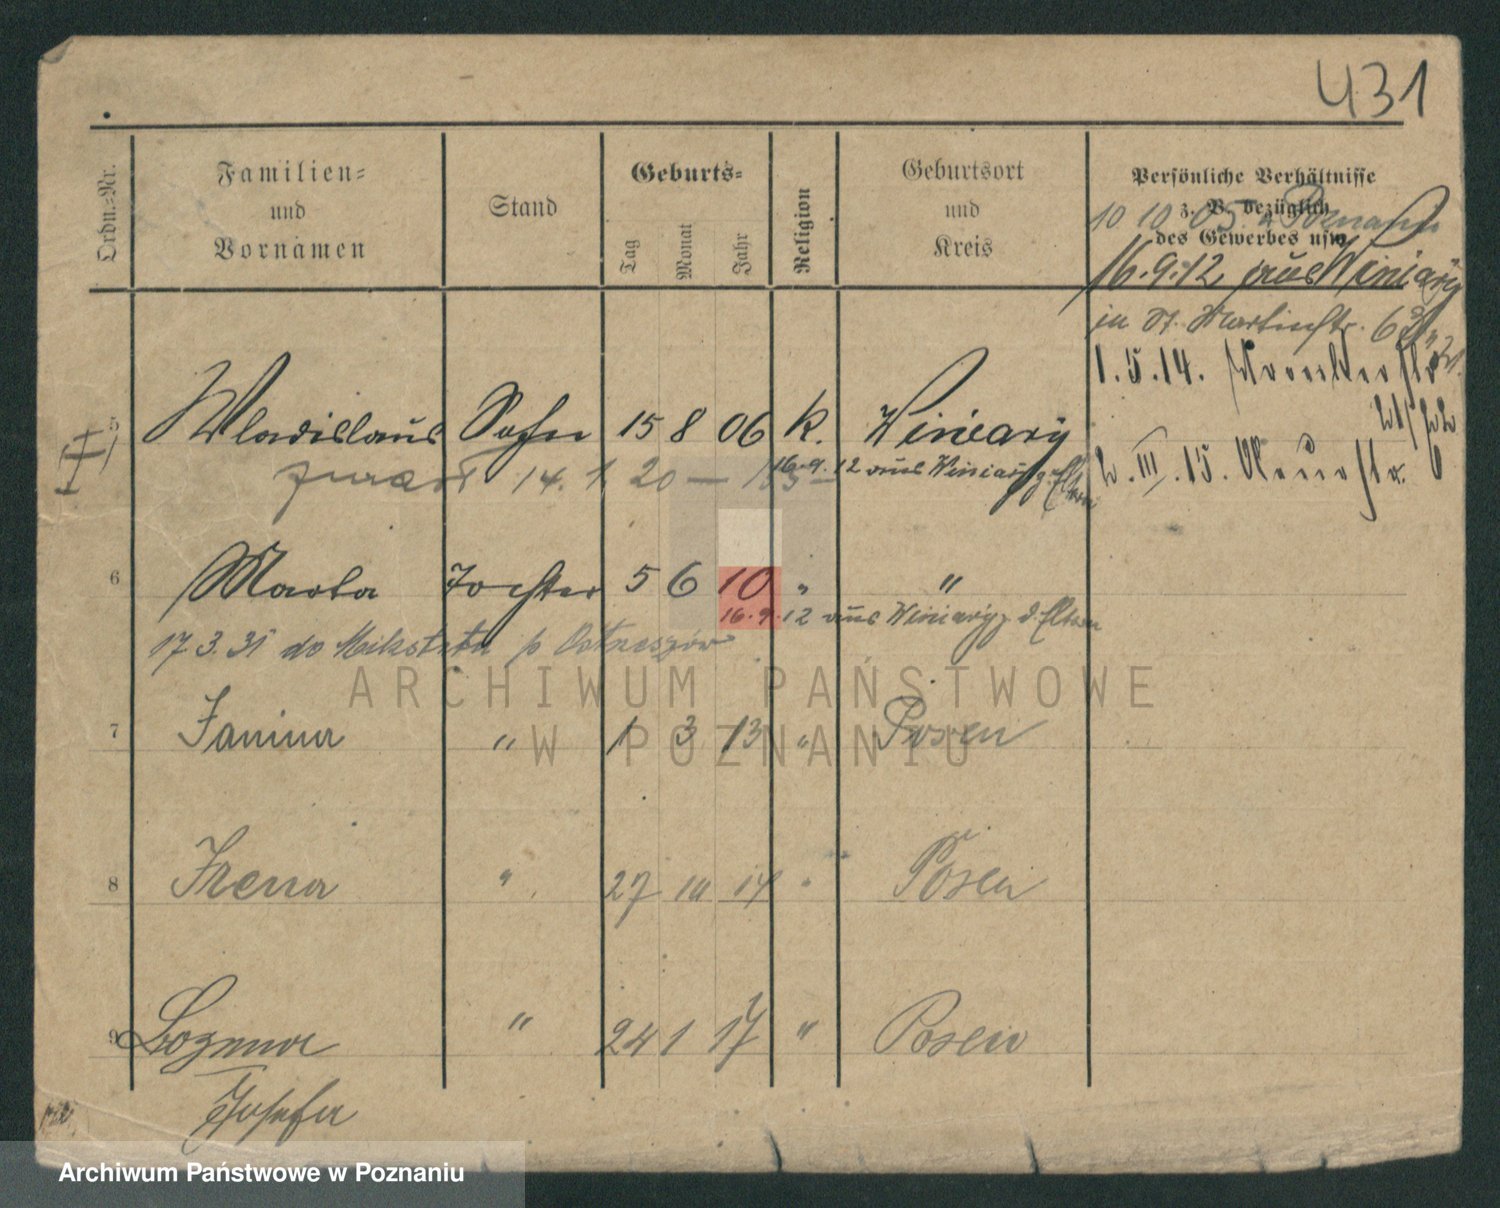 431
Ordn.-Nr.
Familien=
und
Vornamen
Stand
Geburts=
Tag
Monat
Jahr
Religion
Geburtsort
und
Kreis
Persönliche Verhältnisse
z. B. bezüglich
des Gewerbes usw.
10 10 05 Poznań
16.9.12 aus Winiary
in St. Martinstr. 62
1.5.14.
5 Wladislaus Sohn 15 8 06 k. Winiary
14. 1 20 16.9.12 aus Winiary z. d. Eltern
2.III.15. 6
6 Marta Tochter 5 6 10 " "
16.9.12 aus Winiary z. d. Eltern
17 3.31 do Mikstatu p Ostrzeszów
7 Janina " 1 3 13 " Posen
8 Irena " 27 10 14 " Posen
9 Bozena " 24 1 17 " Posen
Josefa
ARCHIWUM PAŃSTWOWE
W POZNANIU
Archiwum Państwowe w Poznaniu